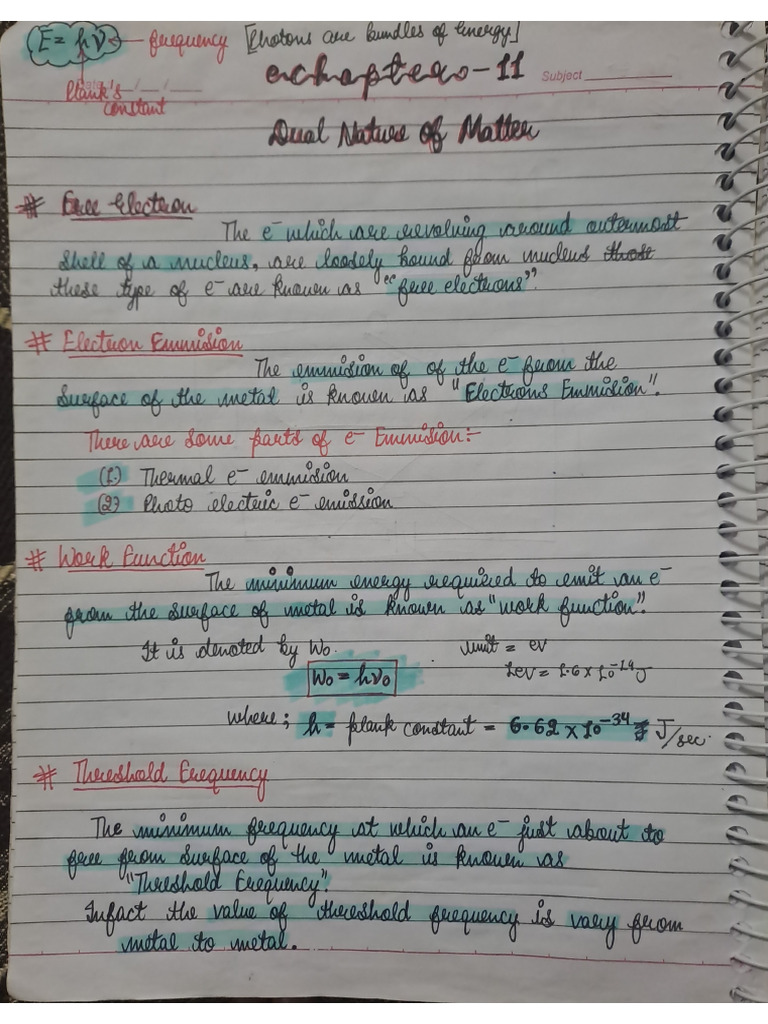 E = hν ← frequency [Photons are bundles of Energy]
Plank's constant
chapter-11
Subject
Dual Nature of Matter
# Free Electron
The e⁻ which are revolving around outermost
shell of a nucleus, are loosely bound from nucleus those
these type of e⁻ are known as "free electrons".
# Electron Emmision
The emmision of of the e⁻ from the
Surface of the metal is known as "Electrons Emmision".
There are some parts of e⁻ Emmision:-
(1.) Thermal e⁻ emmision
(2) Photo electric e⁻ emission
# Work Function
The minimum energy required to emit an e⁻
from the surface of metal is known as "work function".
It is denoted by W₀. unit = ev
W₀ = hν₀ 1ev = 1.6 × 10⁻¹⁹J
where; h = plank constant = 6.62 × 10⁻³⁴ J/sec.
# Threshold Frequency
The minimum frequency at which an e⁻ just about to
free from surface of the metal is known as
"Threshold Frequency".
Infact the value of threshold frequency is vary from
metal to metal.